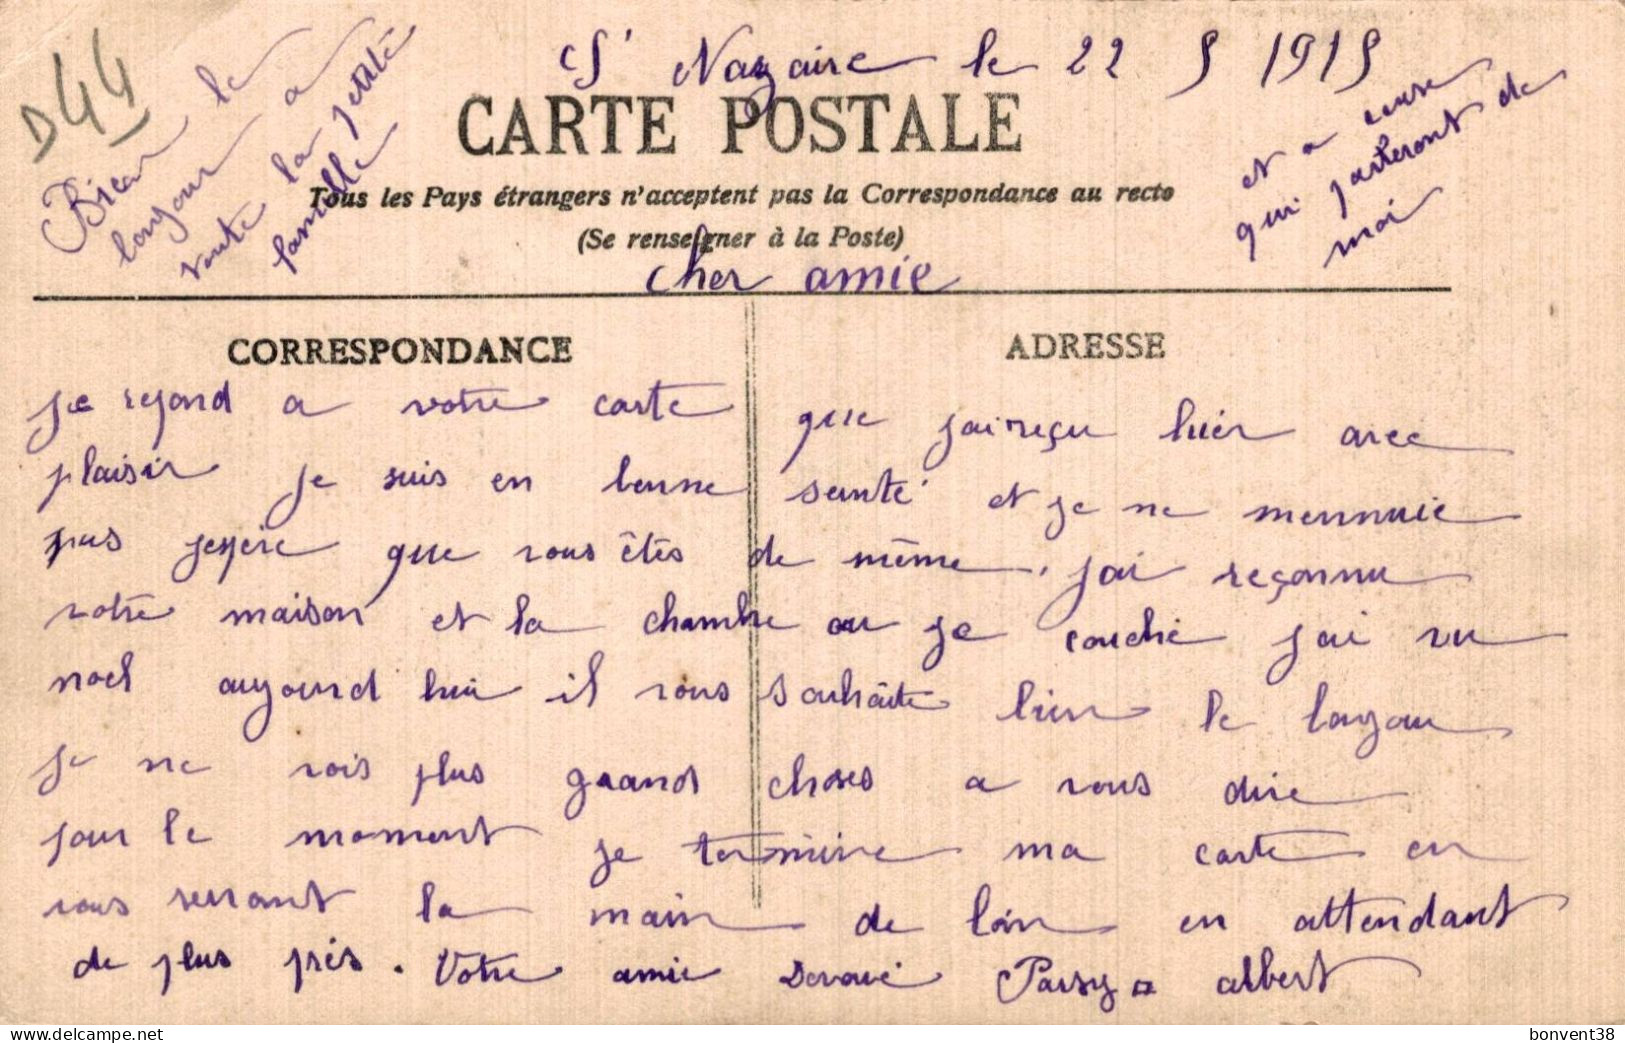 D44
St Nazaire le 22 5 1915
CARTE POSTALE
Tous les Pays étrangers n'acceptent pas la Correspondance au recto
(Se renseigner à la Poste)
Bien le
bonjour a
toute la petite
famille
et a ceux
qui parleront de
moi
Cher amie
CORRESPONDANCE
ADRESSE
je repond a votre carte que jai reçu hier avec
plaisir je suis en bonne santé et je ne mennuie
pas jespère que vous êtes de même. jai reçonnu
votre maison et la chambre ou je couché jai vu
noel aujourd hui il vous souhaite bien le bonjour
je ne vois plus grand choses a vous dire
pour le moment je termine ma carte en
vous serrant la main de loin en attendant
de plus près. Votre amie Devoué Parsy = albert
delcampe.net
bonvent38